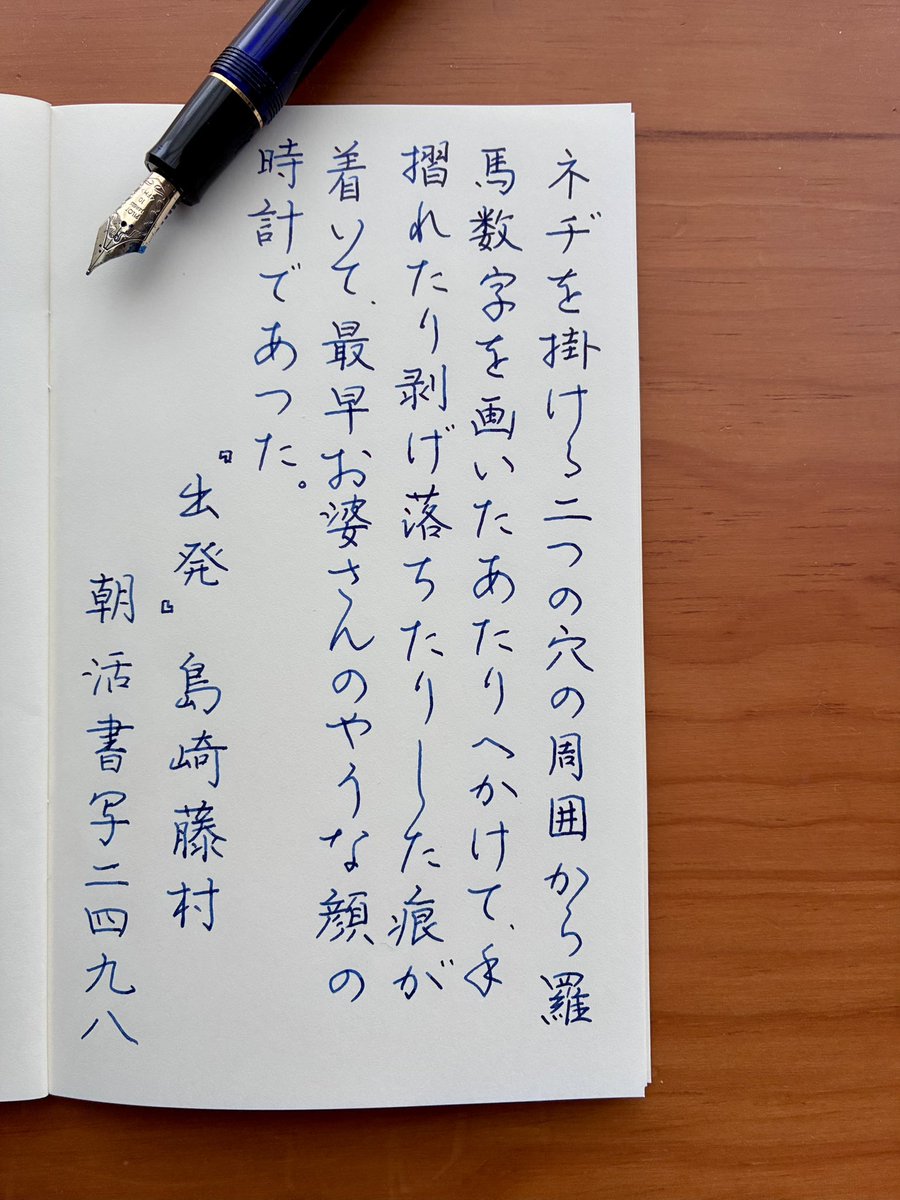 ネヂを掛ける二つの穴の周囲から羅
馬数字を画いたあたりへかけて、手
摺れたり剥げ落ちたりした痕が
着いて、最早お婆さんのやうな顔の
時計であつた。
『出発』 島崎藤村
朝活書写二四九八